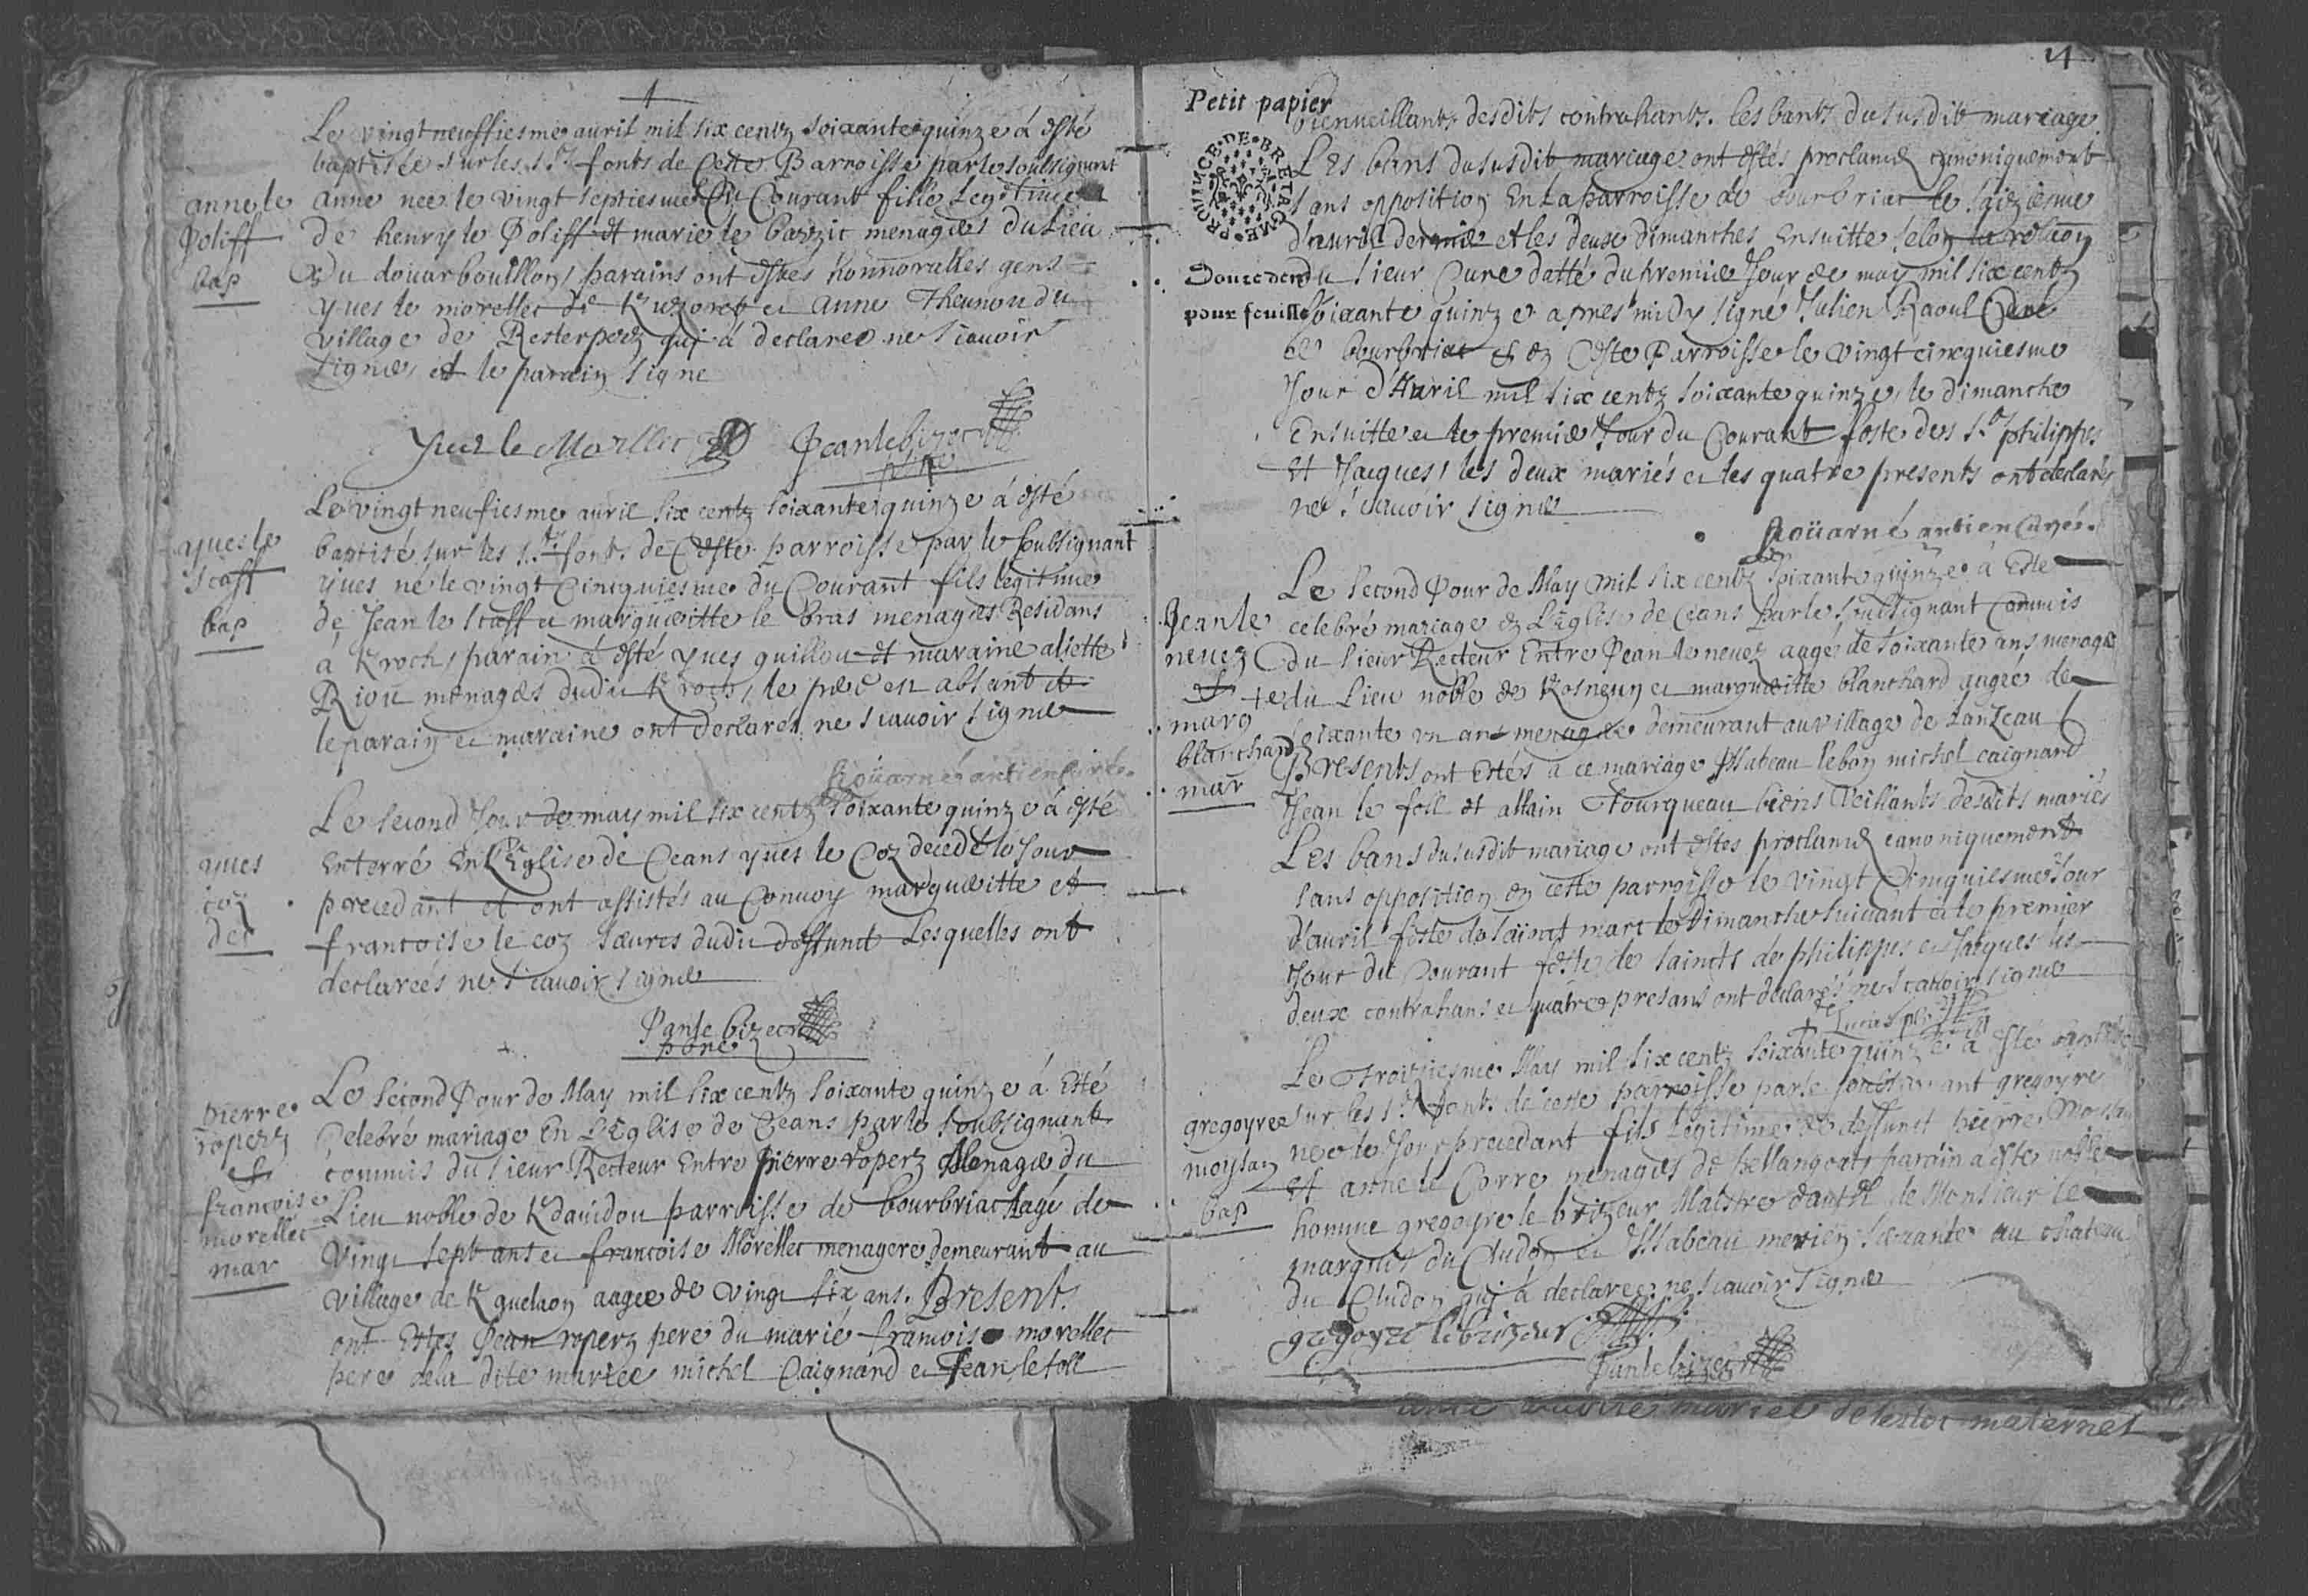 Le vingt neuffiesme auril mil six centz soixante quinze á esté
baptisée sur les s.ts fonts de Ceste Parroisse par le soubsignant
anne le
Joliff
bap
Anne neé le vingt septiesme du Courant fille Legitime
de henry le Joliff et marie le barzic menagers du Lieu
du douarbouillon, parains ont estes honnorables gens
yues le morellec de et Anne Theunon du
village de Resterperz qui á declareé ne scauoir
signer, et le parain signe
Yues le Morellec Jean le bizec
pbre
Le vingt neufiesme auril six centz soixante quinze á esté
yues le
scaff
bap
baptisé sur les s.ts fonts de Ceste parroisse par le soubsignant
yues né le vingt Cincquiesme du Courant fils legitime
de Jean le scaff et margueritte le bras menagers Residans
á Kroch, parain á esté yues guillou et maraine aliette
Riou menagers dudit Kroch, le pere est absent et
le parain et maraine ont declarés ne scauoir signer
Roüarné antien Curé
Le second Jour de may mil six centz soixante quinze á esté
yues
coz
dec
Enterré En L'Eglise de Ceans yues le Coz decedé le Jour
precedant et ont assistés au Conuoy margueritte et
francoise le coz sœures dudit deffunct Lesquelles ont
declareés ne scauoir signer
J an le bizec
pbre
Le second Jour de May mil six centz soixante quinze á Esté
pierre
roperz
et
francoise
morellec
mar
Celebré mariage En L'Eglise de Ceans par le soubsignant
commis du sieur Recteur Entre pierre roperz Menager du
Lieu noble de Kdauidou parroisse de bourbriac Aagé de
Vingt sept ans et francoise Morellec menagere demeurant au
village de K guelaon aageé de vingt six ans. Present
ont Estes Jean roperz pere du marié francois morellec
pere de la dite marieé michel Caignard et Jean le foll
4
Petit papier
PROVINCE DE BRETAGME
Douze den
pour feuille
bienueillants desdits contrahants. les bants du susdit mariage
Les bans du susdit mariage ont estés proclamés canoniquement
sans opposition En La parroisse de bourbriac le saiziesme
d'auril dernier et les deux dimanches Ensuitte selon la relaon
du sieur Curé datté du premier Jour de may mil six centz
soixante quinze apres midy signé Julien Raoul Curé
de bourbriac & en Ceste Parroisse le vingt cincquiesme
Jour d'Auril mil six centz soixante quinze, le dimanche
Ensuitte et le premier Jour du Courant feste des s.ts philippes
Et Jacques, les deux mariés et les quatre presents ont declarés
ne scauoir signer
Roüarné antien Curé
Le second Jour de May mil six centz soixante quinze á Este
Jean le
neuez
et
marg
blanchard
mar
celebré mariage en L'Eglise de Ceans par le soubsignant Commis
du sieur Recteur Entre Jean le neuez aagé de soixante ans menager
du Lieu noble de Kosneun et margueritte blanchard aageé de
soixante un ans menagere demeurant au village de Lanleau
Presents ont Estés á ce mariage Issabeau le bon michel caignard
Jean le foll et allain Tourqueau biens Veillants desdits mariés
Les bans du susdit mariage ont estes proclamés canoniquement
sans opposition en cette parroisse le vingt Cincquiesme Jour
d'auril feste de sainct marc le Dimanche suiuant et le premier
Jour du Courant feste de saincts de philippes et Jacques les
deux contrahans et quatre presans ont declarés ne scauoir signer
Le Troiziesme May mil six centz soixante quinze á esté baptisé
gregoyre
moysan
bap
sur les s.ts fonts de ceste parroisse par le soubsignant gregoyre
neé le Jour precedant fils Legitime de deffunct pierre Moisan
et anne le Corre menagers de hellangoat, parain a este noble
homme gregoyre le brizeur Maistre d'autel de Monsieur le
marquis du Cludon et Issabeau merien seruante au chateau
du Cludon qui á declareé ne scauoir signer
gregoyre le brizeur
J an le bizec
mariee de lestoc maternel